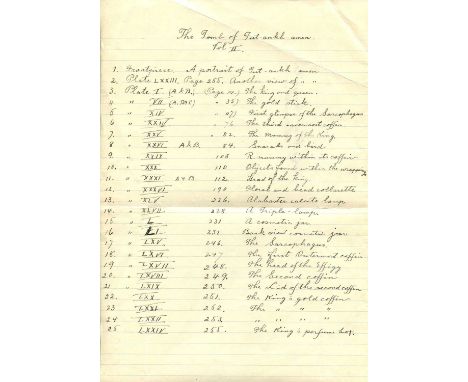 The Tomb of Tut-ankh-amen
Vol II.
1. Frontpiece. A portrait of Tut-ankh amen
2. Plate LXXIII. Page 255. Another view of " "
3. Plate I (A & B.) (Page 12.) The king and queen.
4 " VII (A, B & C) " 35) The gold stick.
5 " XIV " 47) First glimpse of the Sarcophagus
6 " XXIV " 76 The third innermost coffin
7. " XXV " 82. The mummy of the King.
8 " XXVI A & B. " 84. Scarabs and bird
9 " XXIX 108 R mummy within its coffin
10. " XXX 110 Objects found within the wrappings
11 " XXXI A & B " 112 Head of the King
12. " XXXVI 190 Cloak and bead collarette
13. " XLV " 226. Alabaster calcite lamp
14. " XLVII " 228 A Triple-lamp
15 " L " 231 A cosmetic jar
16 " LI " 231 Back view cosmetic jar
17 " LXV " 246. The Sarcophagus
18 " LXVI " 247 The first Outermost coffin
19 " LXVII " 248. The head of the Effigy
20. " LXVIII " 249. The Second coffin
21 " LXIX " 250. The Lid of the second coffin
22. " LXX " 251. The King's gold coffin
23 " LXXI " 252. The " " "
24 " LXXII " 253. " " " "
25 " LXXIV " 255. The King's perfume box.